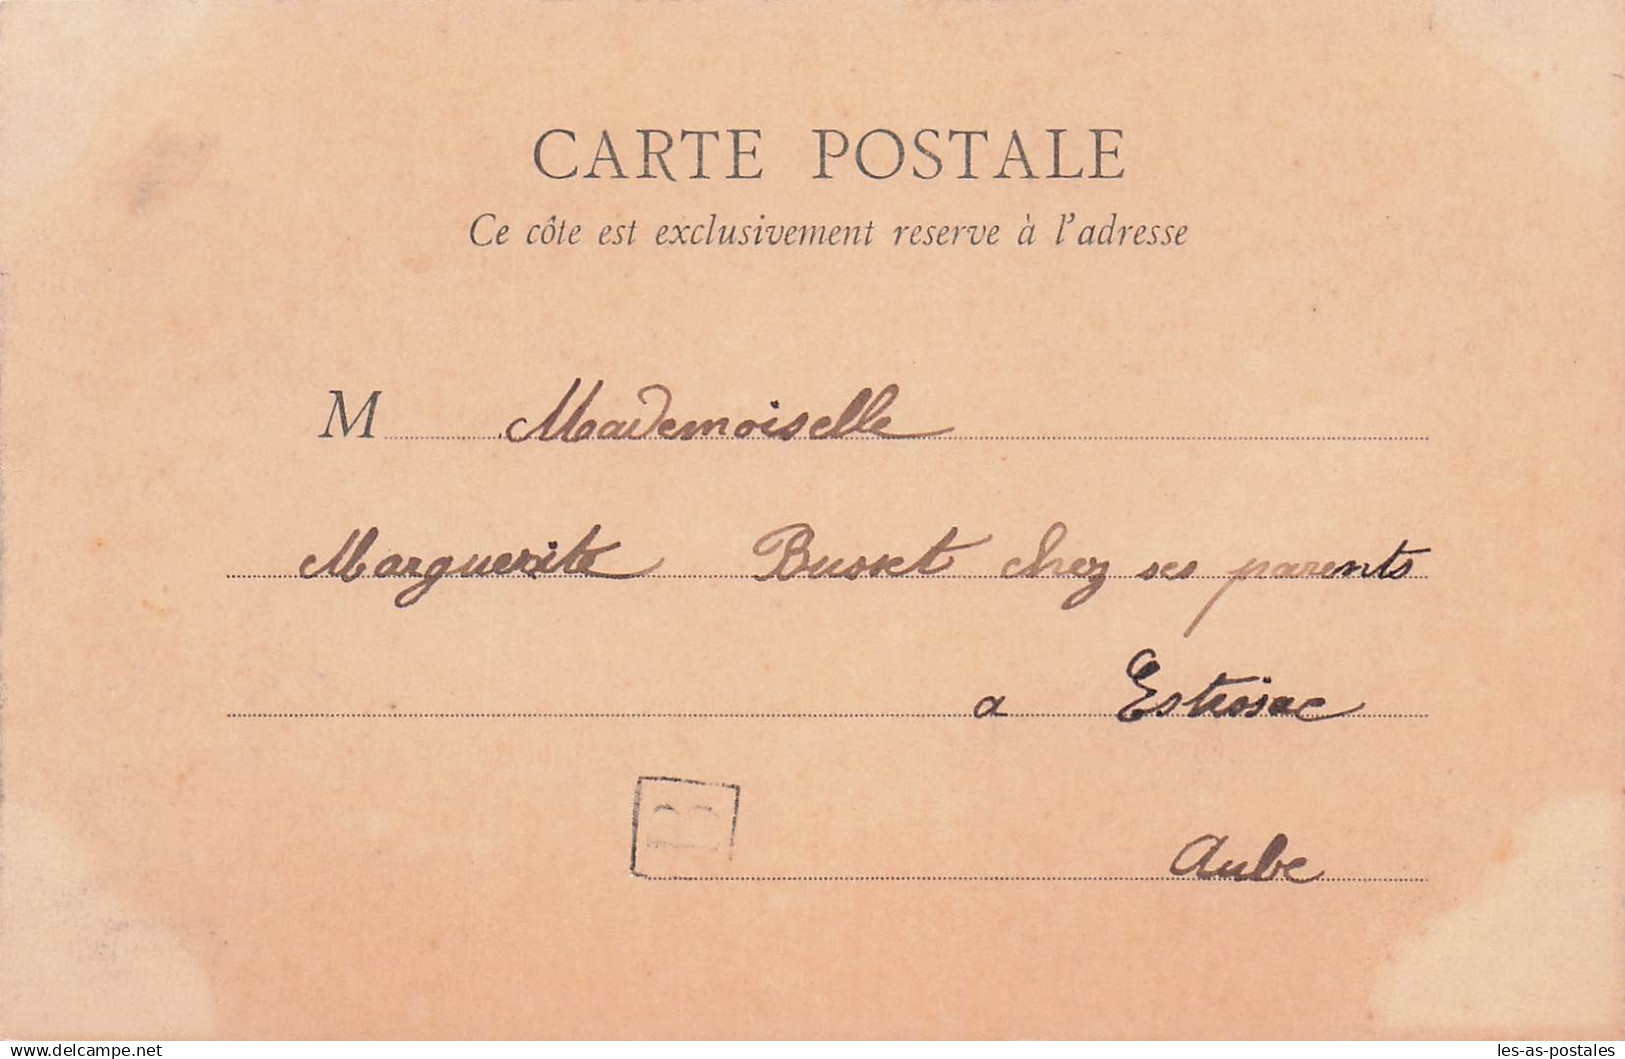 CARTE POSTALE
Ce côte est exclusivement reserve à l'adresse
M Mademoiselle
Marguerite Busset chez ses parents
a Estissac
Aube
delcampe.net
les-as-postales